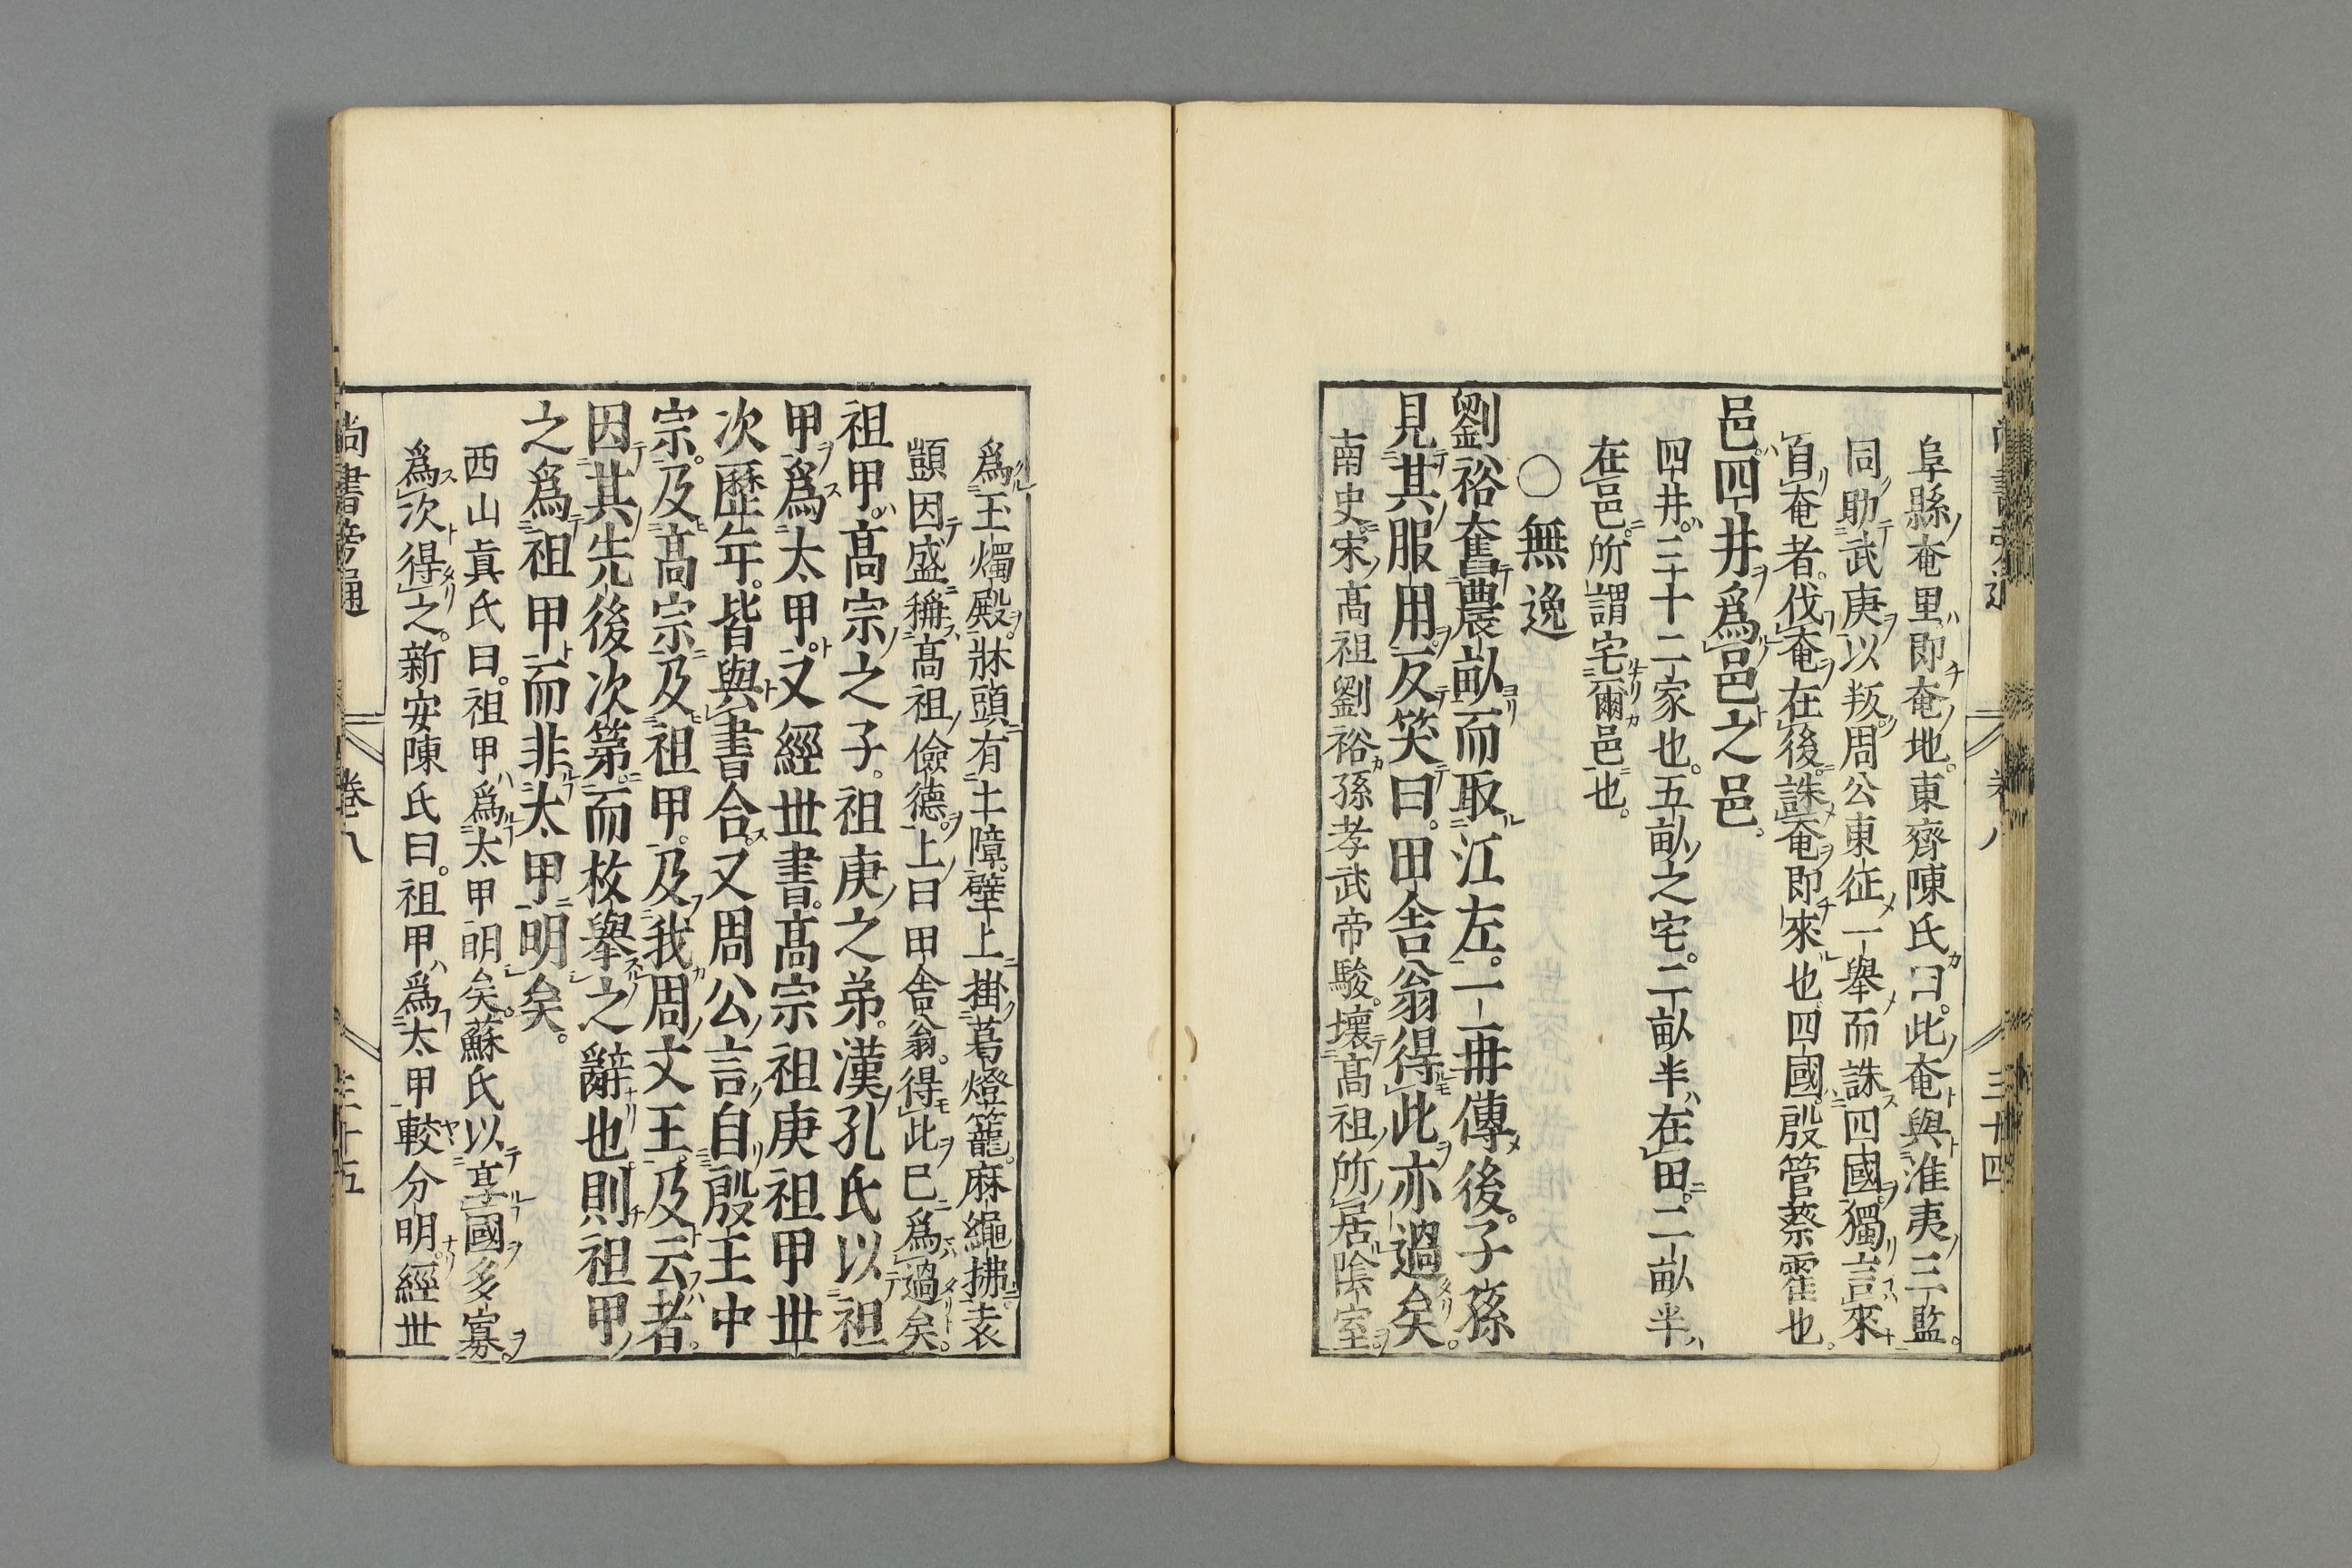 阜縣奄里即奄地東齊陳氏曰此奄與淮夷三監
同助武庚以叛周公東征一舉而誅四國獨言來
自奄者伐奄在後誅奄即來也四國殷管蔡霍也
邑四井爲邑之邑
四井三十二家也五畒之宅二畒半在田二畒半
在邑所謂宅爾邑也
〇無逸
劉裕奮農畒而取江左一再傳後子孫
見其服用反笑曰田舎翁得此亦過矣
南史宋髙祖劉裕孫孝武帝駿壞髙祖所居陰室
爲玉燭殿牀頭有土障壁上掛葛燈籠麻繩拂袁
顗因盛稱髙祖儉德上曰田舎翁得此已爲過矣
祖甲髙宗之子祖庚之弟漢孔氏以祖
甲爲太甲又經丗書髙宗祖庚祖甲丗
次歷年皆與書合又周公言自殷王中
宗及髙宗及祖甲及我周文王及云者
因其先後次第而枚舉之辭也則祖甲
之爲祖甲而非太甲明矣
西山眞氏曰祖甲爲太甲明矣蘇氏以享國多寡
爲次得之新安陳氏曰祖甲爲太甲較分明經丗
尚書旁通 卷八 三十五
三十四